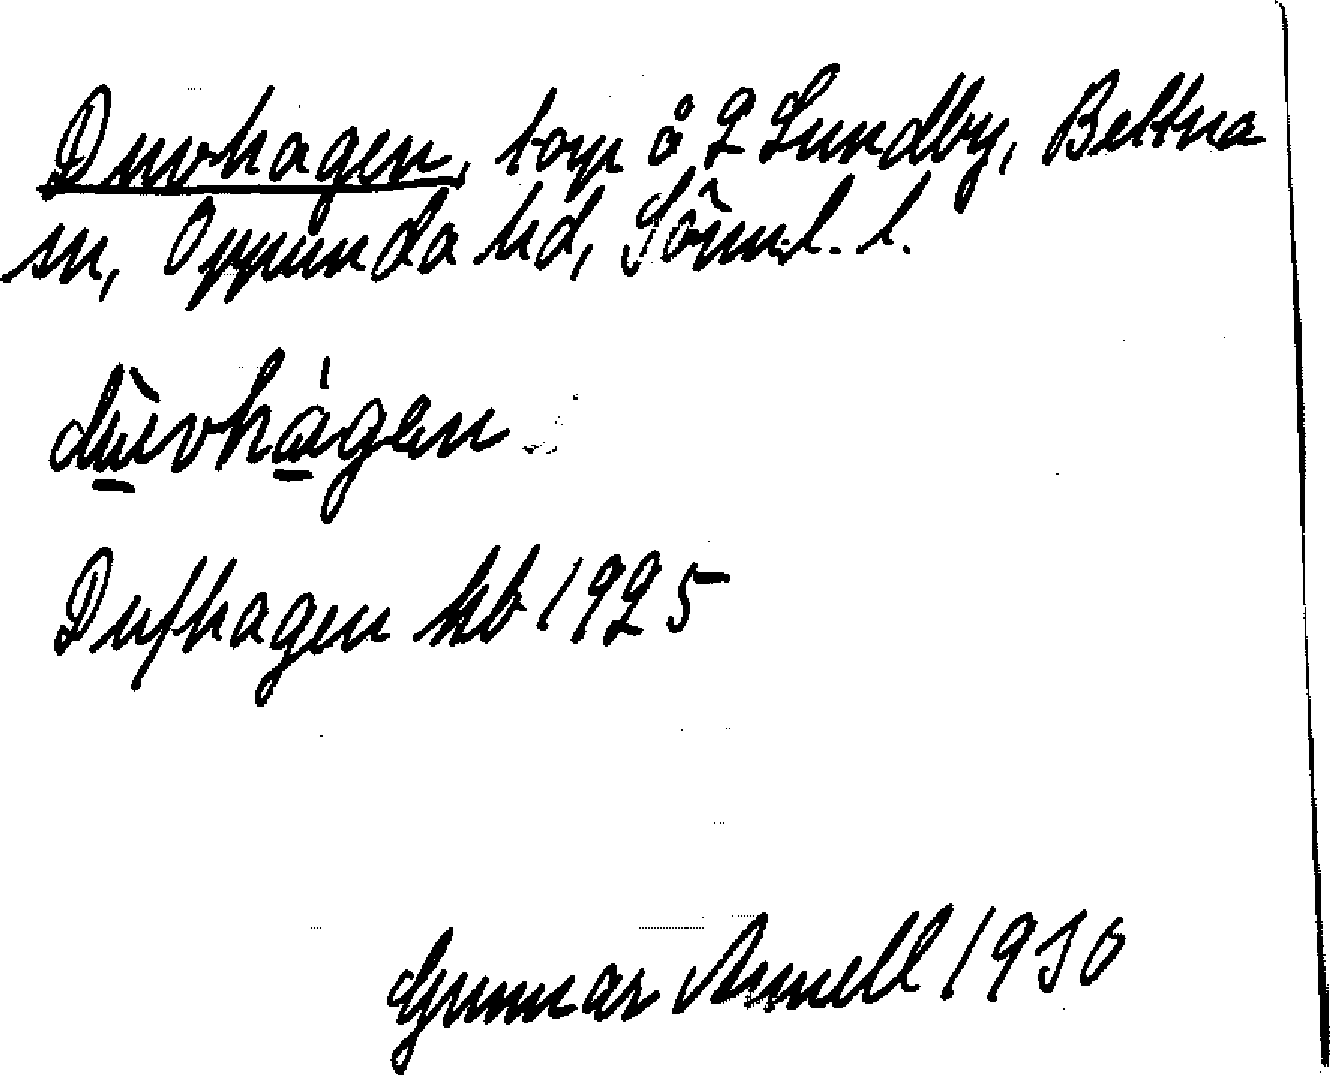 Duvhagen, torp å 2 Lundby, Bettna
sn, Oppunda hd, Sörml. l.
dùvhágen
Dufhagen hb 1925
Gunnar Arnell 1930